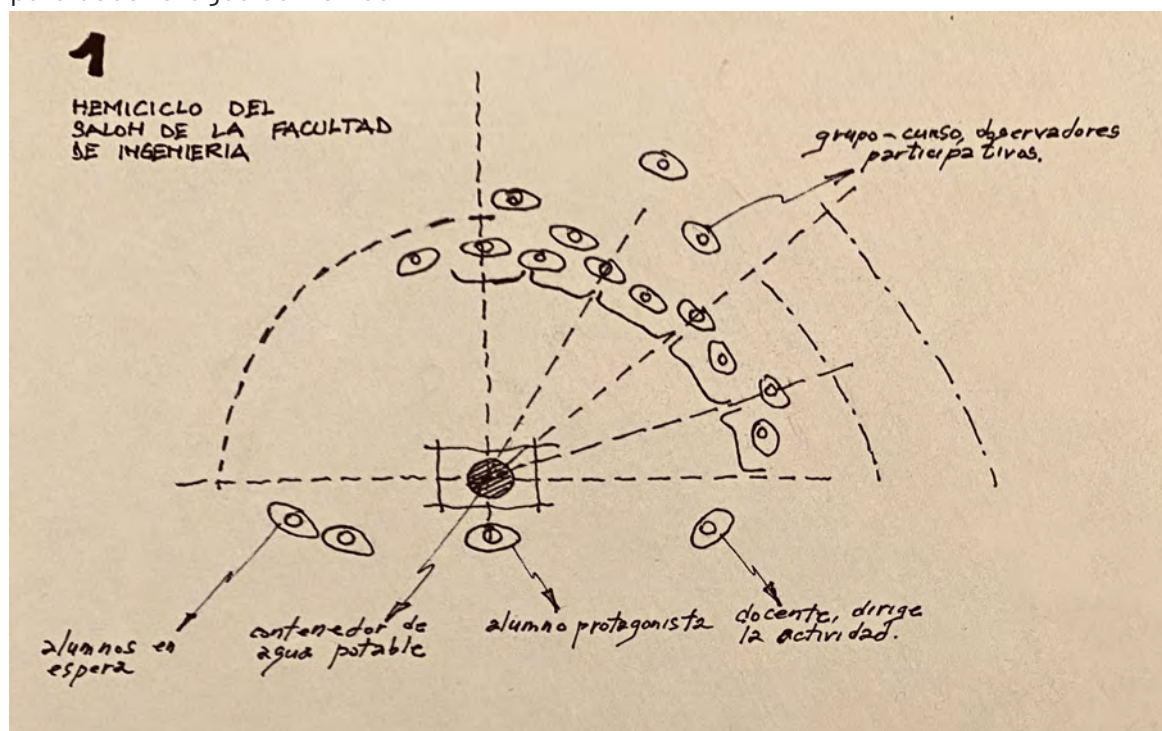 1
HEMICICLO DEL
SALON DE LA FACULTAD
DE INGENIERIA
grupo-curso, observadores
participativos.
alumnos en
espera
contenedor de
agua potable
alumno protagonista
docente, dirige
la actividad.